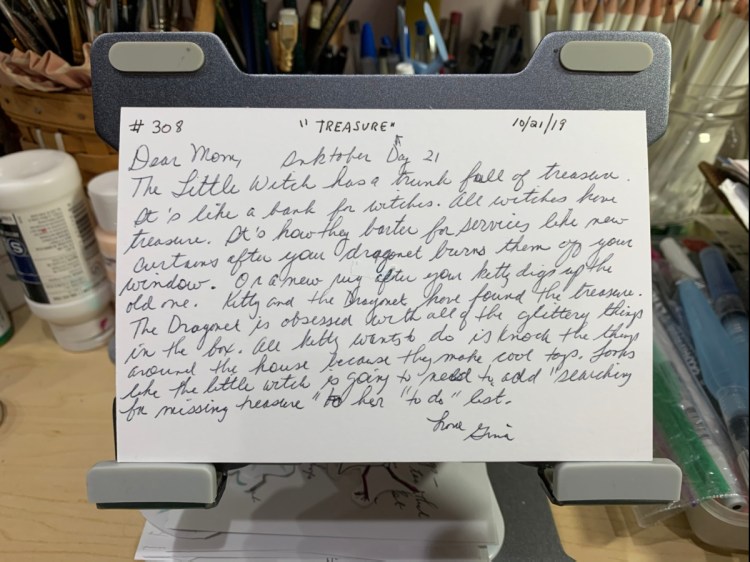 # 308 "TREASURE" 10/21/19
Dear Mom, Inktober Day 21
The Little Witch has a trunk full of treasure.
It's like a bank for witches. All witches have
treasure. It's how they barter for services like new
curtains after your dragonet burns them off your
window. Or a new rug after your kitty digs up the
old one. Kitty and the Dragonet have found the treasure.
The Dragonet is obsessed with all of the glittery things
in the box. All kitty wants to do is knock the things
around the house because they make cool toys. Looks
like the little witch is going to need to add "searching
for missing treasure" to her "to do" list.
Love Gina